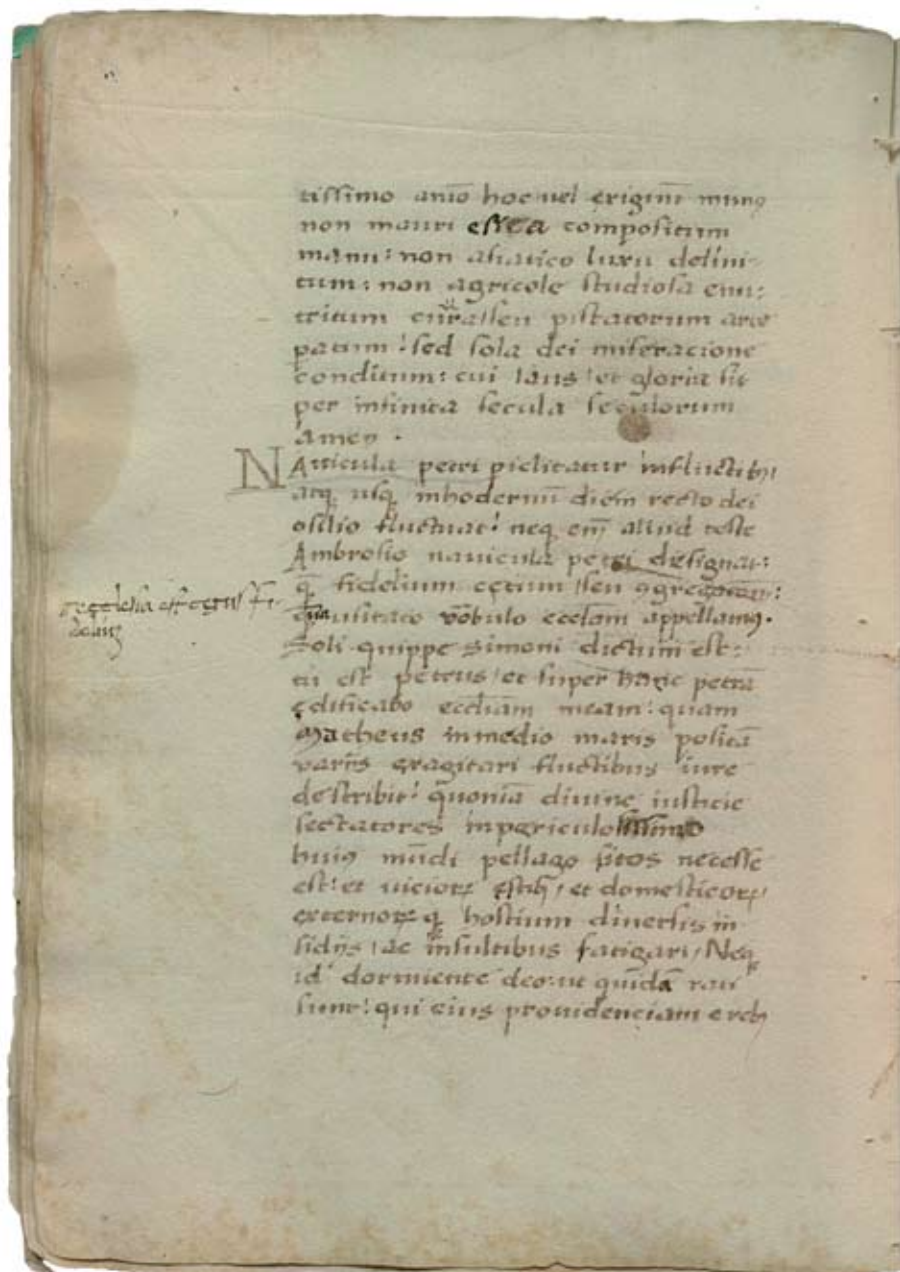 tissimo animo hoc uel exiguum munus
non mauri compositum
manu: non asiatico luxu delini-
tum: non agricole studiosa enu-
tritum cura: seu pistatorum arte
patum: sed sola dei miseracione
conditum: cui laus et gloria sit
per infinita secula seculorum
amen.
Nauicula petri piclitatur influctibus
atq usq inhodernu diem recto dei
fluctuat: neq eni aliud teste
Ambrosio nauicula petri designat:
q fidelium cetum seu ggregationem:
qua usitato ecclam appellamus.
Soli quippe simoni dictum est:
tu est petrus et super hanc petra
edificabo eccliam meam: quam
Matheus inmedio maris posita
variis exagitari fluctibus iure
describit: quonia diuine iusticie
sectatores inpericulosissimo
huius mudi pellago sitos necesse
est: et uicior et domesticor
externor q hostium diuersis in-
sidijs, ac insultibus fatigari, Neq
id dormiente deo: ut quida rati
sunt: qui eius prouidenciam e rebus
ecclesia est cetus fi-
deliu